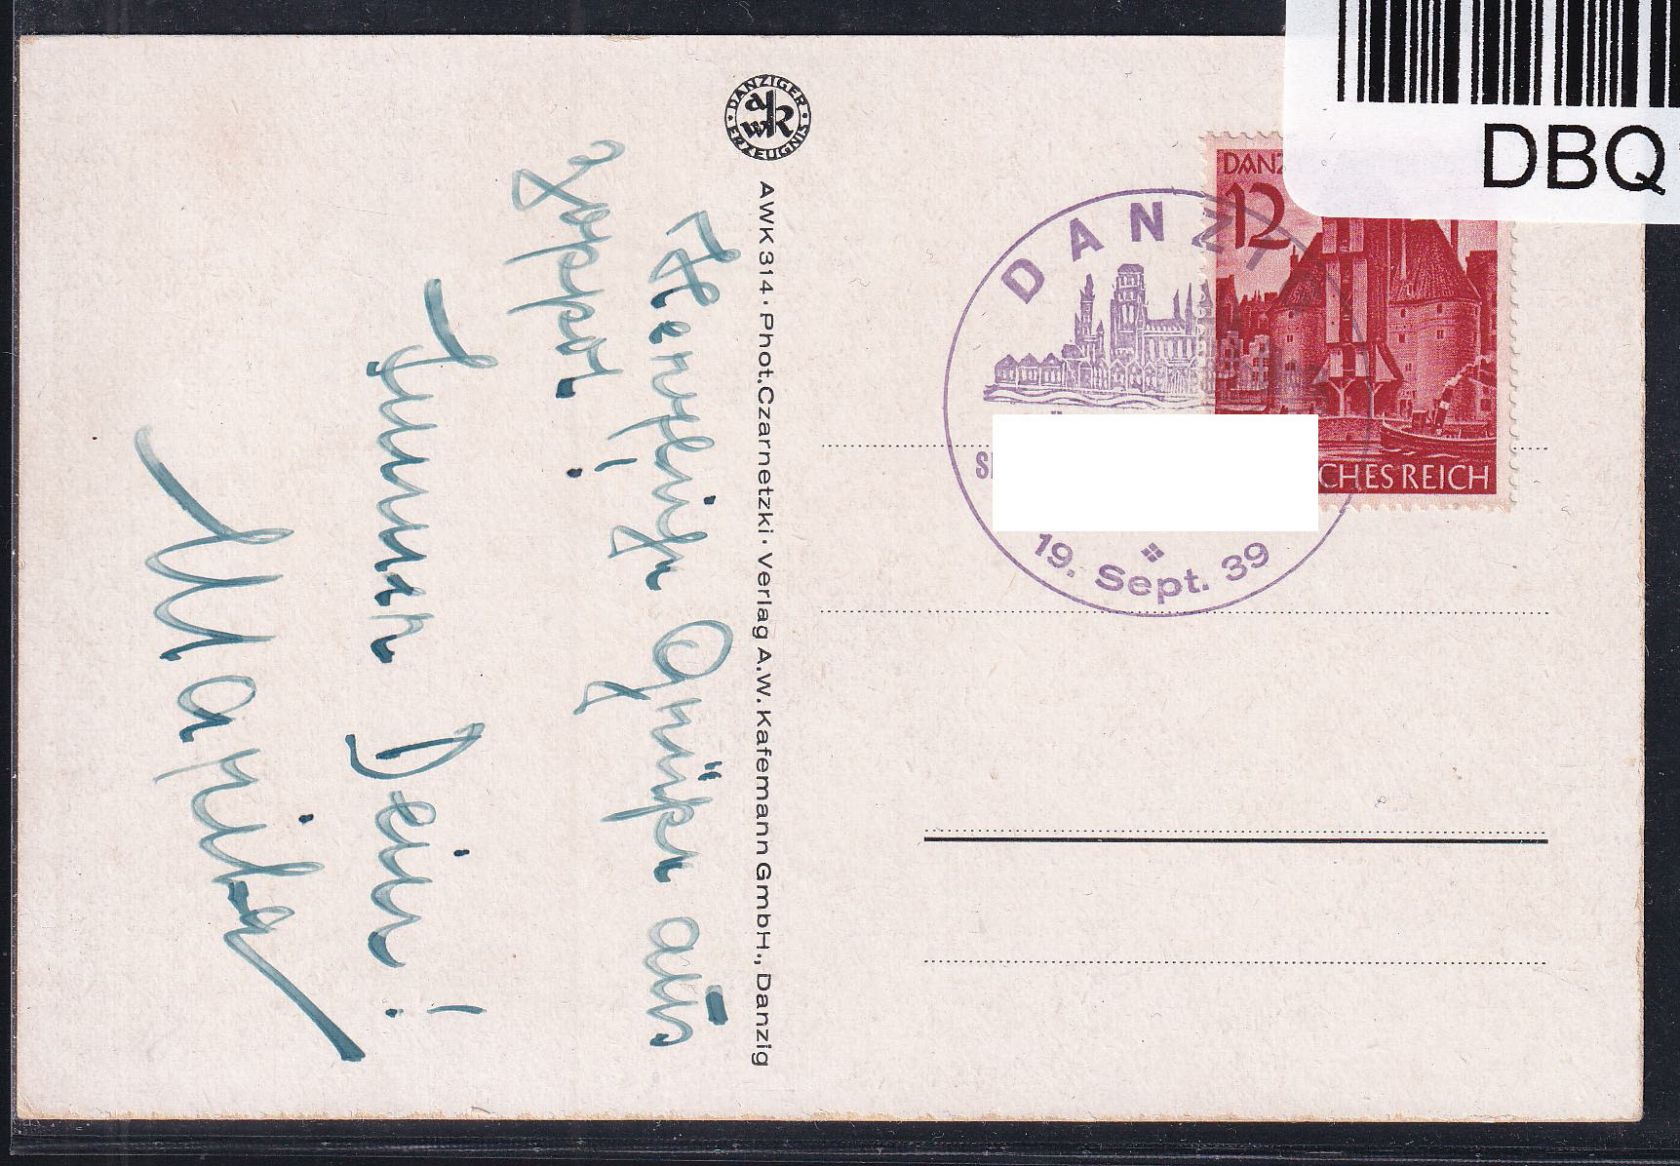 Herzliche Grüße aus
Zoppot!
Immer Dein!
Marika
DANZIGER ERZEUGNIS
AWK
AWK 314 · Phot. Czarnetzki · Verlag A.W. Kafemann GmbH., Danzig
DANZI
19. Sept. 39
DANZ
12
CHES REICH
DBQ